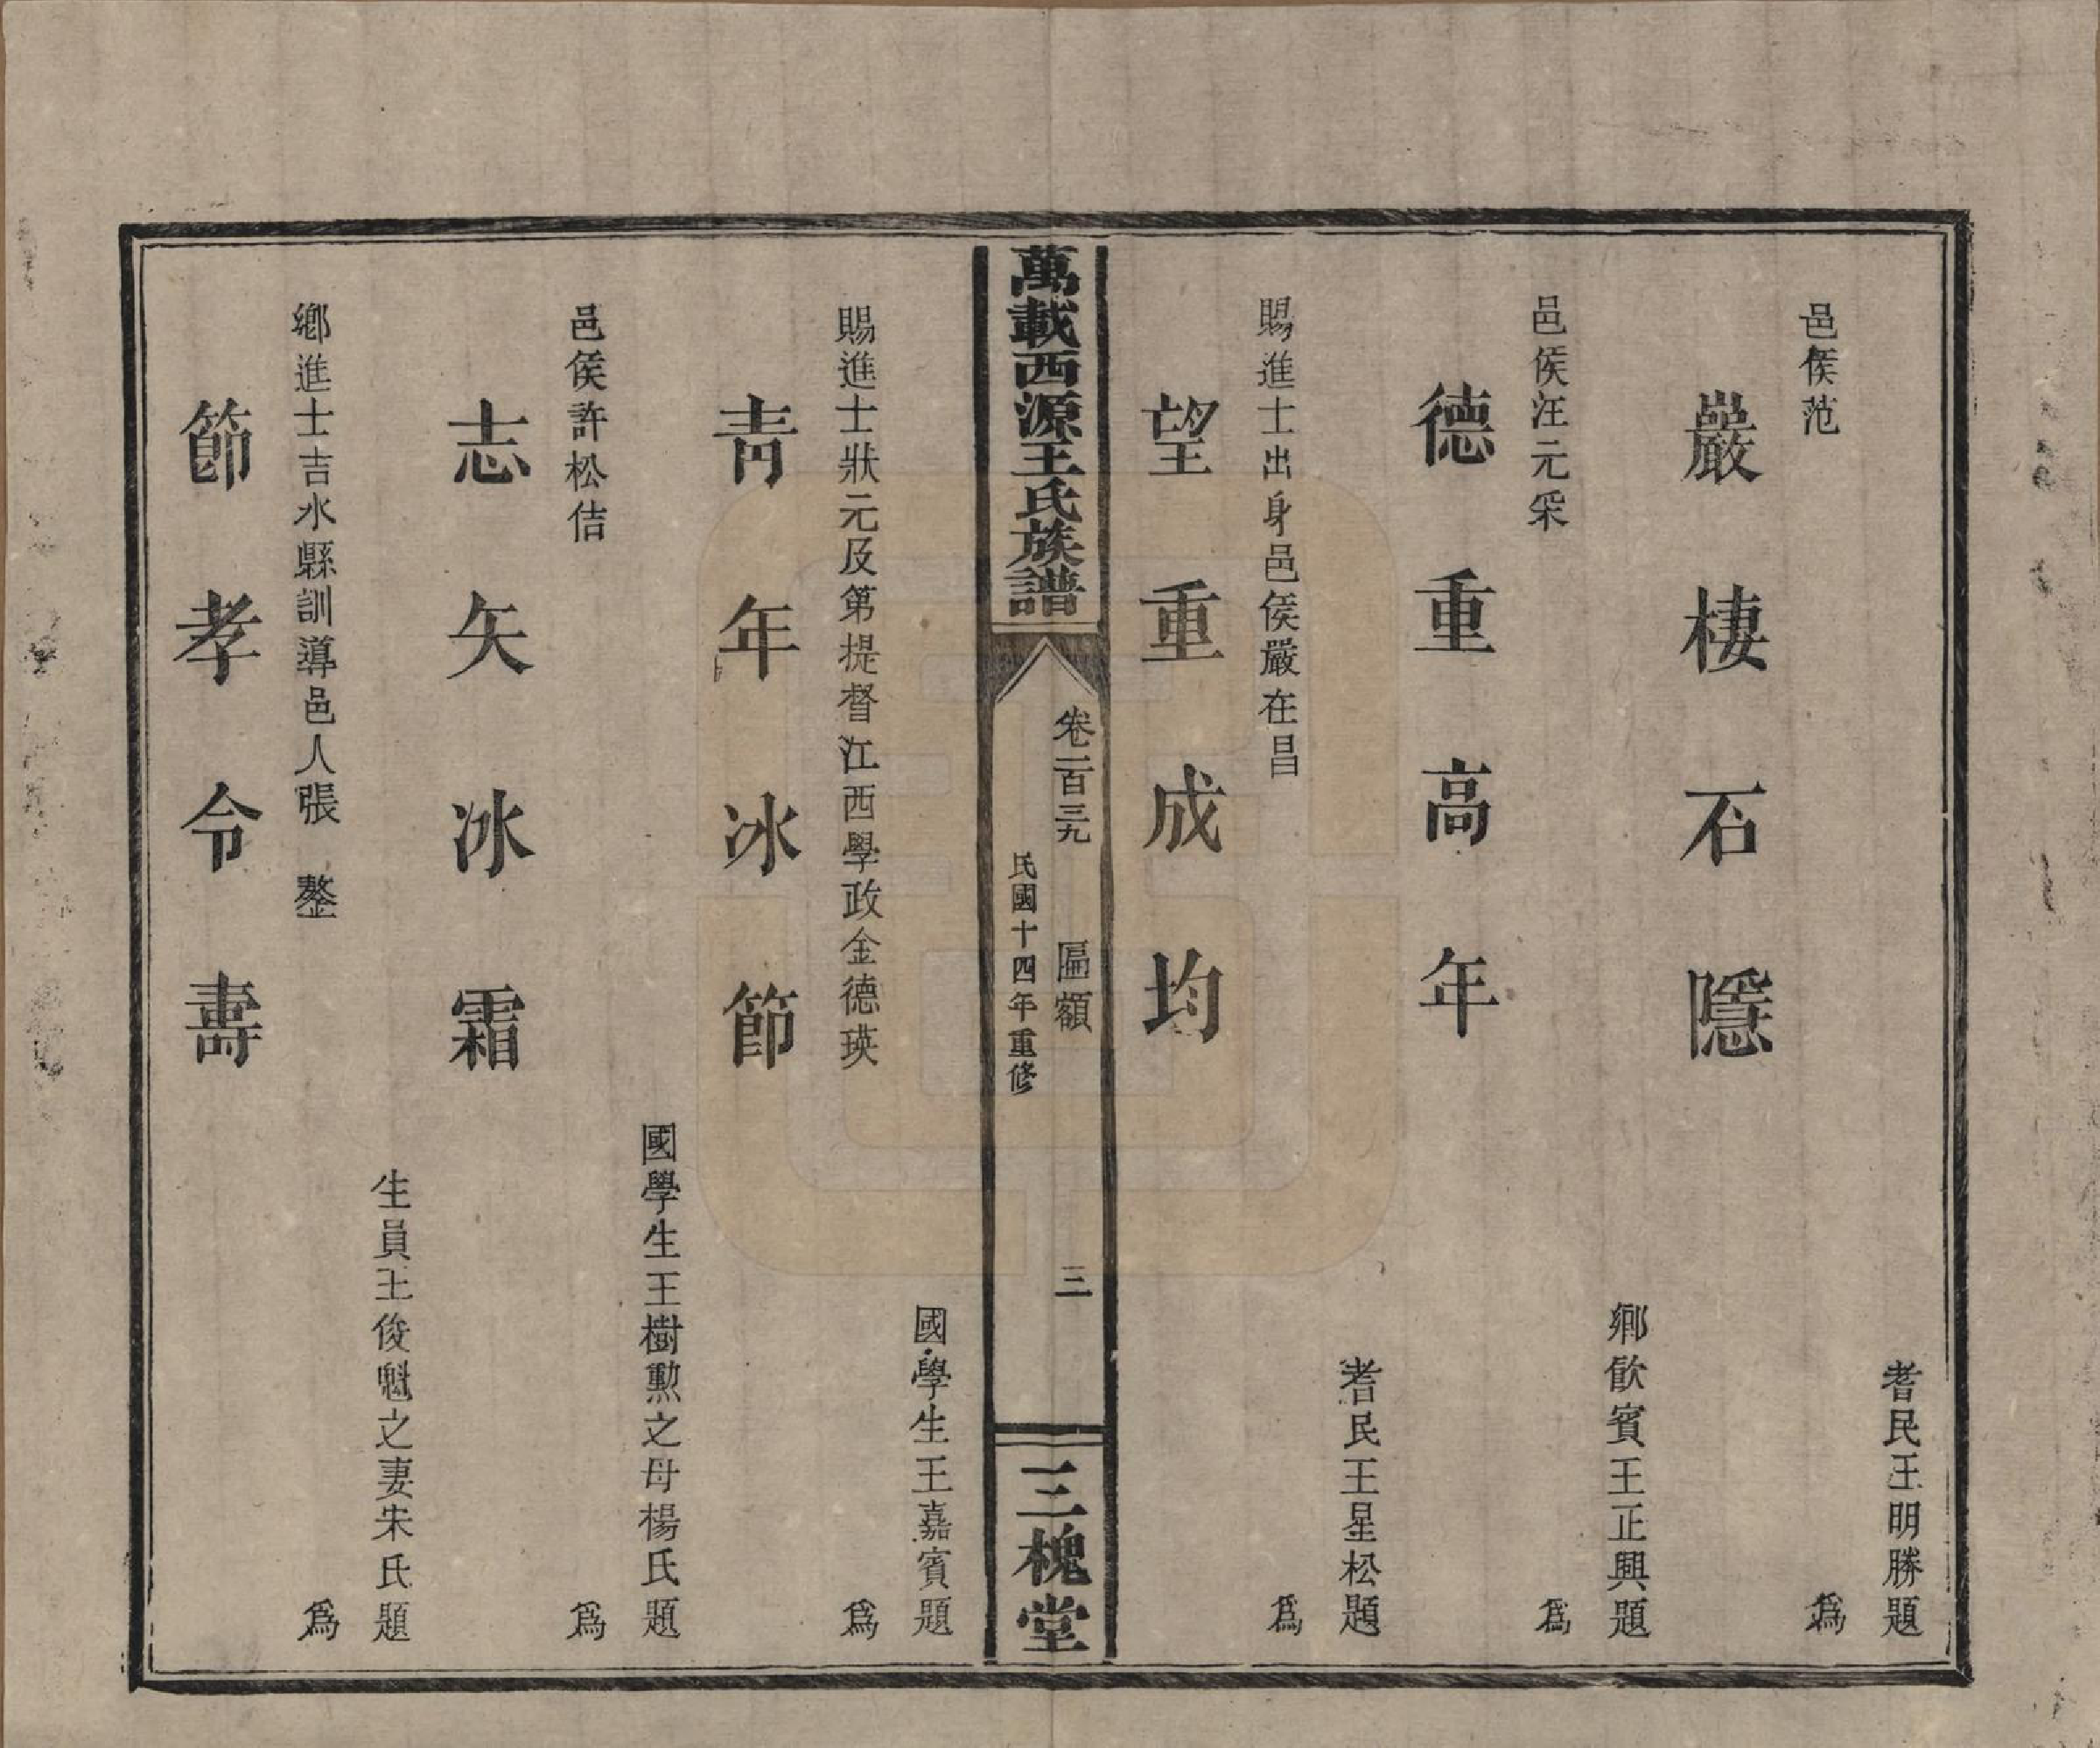 耆民王明勝題
邑侯范
爲
嚴棲石隱
鄉飲賓王正興題
邑侯汪元采
爲
德重高年
耆民王星松題
賜進士出身邑侯嚴在昌
爲
望重成均
萬載西源王氏族譜
卷二百三九
匾額
三
民國十四年重修
三槐堂
國學生王嘉賓題
賜進士狀元及第提督江西學政金德瑛
爲
靑年冰節
國學生王樹勲之母楊氏題
邑侯許松佶
爲
志矢冰霜
生員王俊魁之妻朱氏題
鄉進士吉水縣訓導邑人張 鏊
爲
節孝令壽